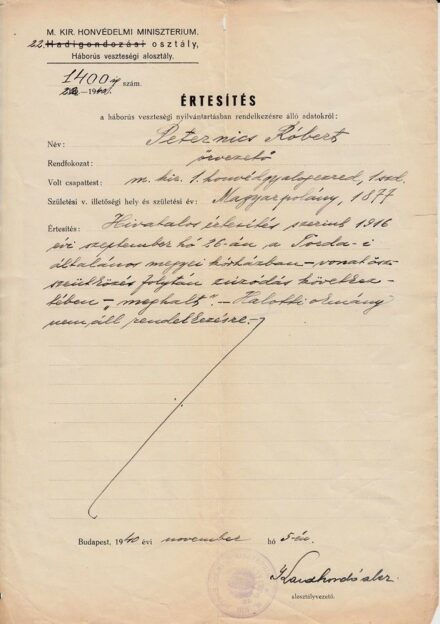 M. KIR. HONVÉDELMI MINISZTERIUM.
22. Hadigondozási osztály,
Háborús veszteségi alosztály.
1400 szám.
ÉRTESÍTÉS
a háborús veszteségi nyilvántartásban rendelkezésre álló adatokról:
Név: Peternics Róbert
Rendfokozat: őrvezető
Volt csapattest: m. kir. 1. honvédgyalogezred, 1. szd.
Születési v. illetőségi hely és születési év: Magyarpolány, 1877
Értesítés: Hivatalos értesítés szerint 1916
évi szeptember hó 26-án a Torda-i
általános megyei kórházban – vonatösz-
szeütközés folytán zúzódás következ-
tében – „meghalt". – Halotti okmány
nem áll rendelkezésre. –
Budapest, 1940 évi november hó 5-én.
alosztályvezető.